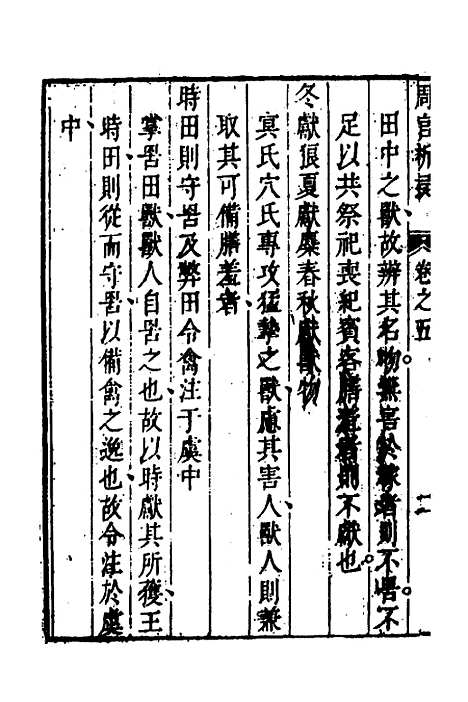 周官析疑 卷之五 十二
田中之獸故辨其名物無害於稼者則不罟不
足以共祭祀喪紀賓客膳羞者則不獻也
冬獻狼夏獻麋春秋獻獸物
冥氏穴氏專攻猛摯之獸慮其害人獸人則兼
取其可備膳羞者
時田則守罟及弊田令禽注于虞中
掌罟田獸獸人自罟之也故以時獻其所獲王
時田則從而守罟以備禽之逸也故令注於虞
中